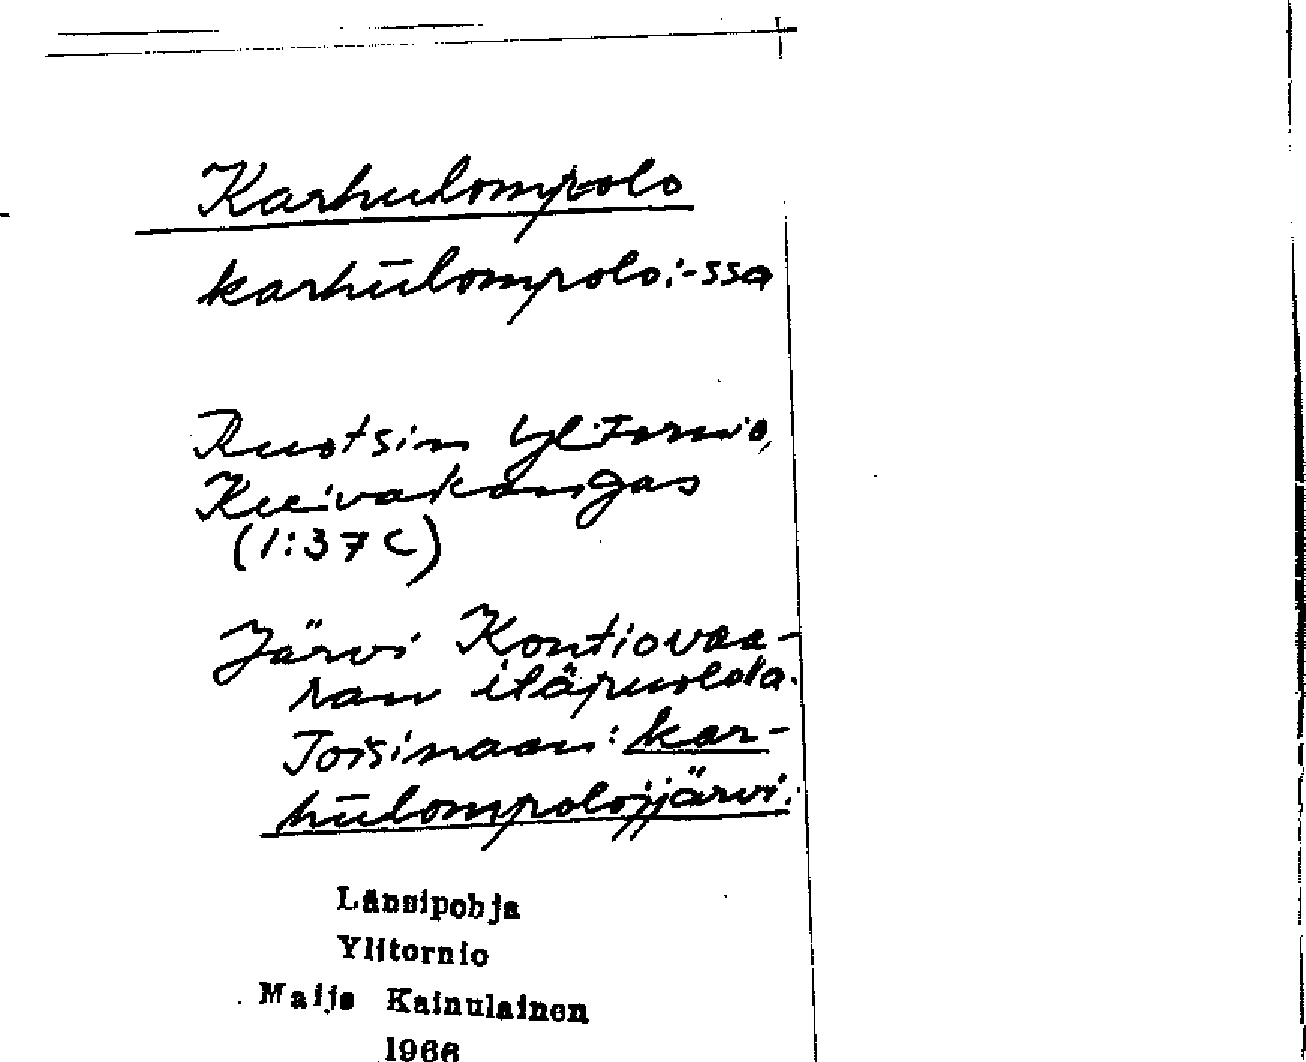 Karhulompolo
karhūlompolo:-ssa
Ruotsin Ylitornio,
Kuivakangas
(1:37 C)
Järvi Kontiovaa-
ran itäpuolella.
Toisinaan: kar-
hūlompolojjärvi.
Länsipohja
Ylitornio
Maija Kainulainen
1966